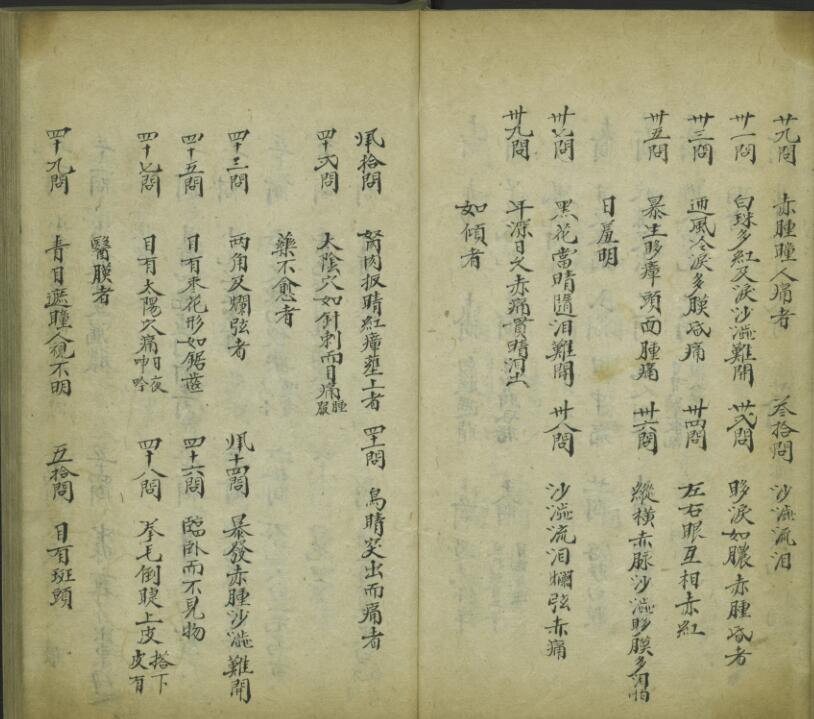 廿九問 赤腫瞳人痛者 叁拾問 沙澁流泪
卅一問 白珠多紅及淚沙澁難開 卅弍問 眵淚如膿赤腫昏者
卅三問 迎風冷淚多膜昏痛 卅四問 左右眼互相赤紅
卅五問 暴生眵瘴頭面腫痛 卅六問 縱橫赤脉沙澁眵膜多泪怕
日羞明
卅七問 黑花當睛隨泪難開 卅八問 沙澁流泪爛弦赤痛
卅九問 日久赤痛貫睛河出
如傾者
拾問 胬肉扳睛紅瘴壅上者 四十一問 烏睛突出而痛者
四十弍問 太陰穴如針刺而目痛腫服
藥不愈者
四十三問 兩角及爛弦者 十四問 暴發赤腫沙澁難開
四十五問 目有枣花形如鋸齒 四十六問 臨卧而不見物
四十七問 目有太陽穴痛日夜吟
醫膜者 四十八問 拳毛倒睫上皮搭下皮有
四十九問 青目遮瞳人視不明 五拾問 目有斑頭